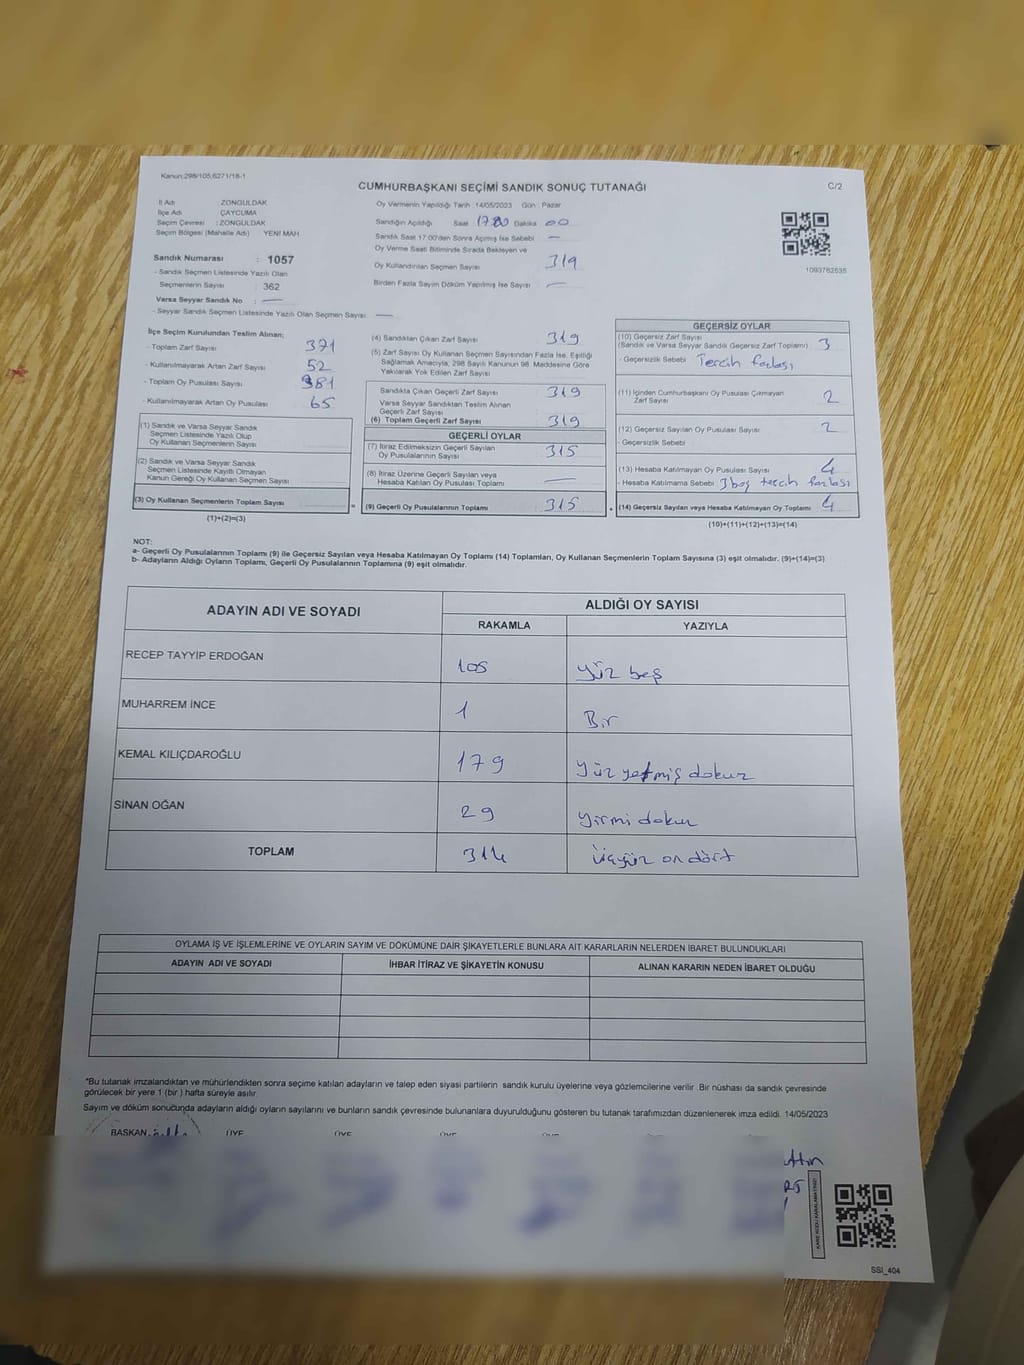 Kanun;298/105;6271/18-1
CUMHURBAŞKANI SEÇİMİ SANDIK SONUÇ TUTANAĞI
C/2
İl Adı ZONGULDAK
İlçe Adı ÇAYCUMA
Seçim Çevresi : ZONGULDAK
Seçim Bölgesi (Mahalle Adı) YENİ MAH.
Sandık Numarası : 1057
- Sandık Seçmen Listesinde Yazılı Olan
Seçmenlerin Sayısı 362
Varsa Seyyar Sandık No : —
- Seyyar Sandık Seçmen Listesinde Yazılı Olan Seçmen Sayısı —
Oy Vermenin Yapıldığı Tarih : 14/05/2023 Gün : Pazar
Sandığın Açıldığı Saat 17:00 Dakika 00
Sandık Saat 17:00'den Sonra Açımış İse Sebebi —
Oy Verme Saati Bitiminde Sırada Bekleyen ve
Oy Kullandırılan Seçmen Sayısı 319
Birden Fazla Sayım Döküm Yapılmış İse Sayısı —
1093762635
İlçe Seçim Kurulundan Teslim Alınan;
- Toplam Zarf Sayısı 371
- Kullanılmayarak Artan Zarf Sayısı 52
- Toplam Oy Pusulası Sayısı 381
- Kullanılmayarak Artan Oy Pusulası 65
(1) Sandık ve Varsa Seyyar Sandık
Seçmen Listesinde Yazılı Olup
Oy Kullanan Seçmenlerin Sayısı
(2) Sandık ve Varsa Seyyar Sandık
Seçmen Listesinde Kayıtlı Olmayan
Kanun Gereği Oy Kullanan Seçmen Sayısı
(3) Oy Kullanan Seçmenlerin Toplam Sayısı
(1)+(2)=(3)
(4) Sandıktan Çıkan Zarf Sayısı 319
(5) Zarf Sayısı Oy Kullanan Seçmen Sayısından Fazla İse, Eşitliği
Sağlamak Amacıyla, 298 Sayılı Kanunun 98. Maddesine Göre
Yakılarak Yok Edilen Zarf Sayısı
Sandıkta Çıkan Geçerli Zarf Sayısı 319
Varsa Seyyar Sandıktan Teslim Alınan
Geçerli Zarf Sayısı
(6) Toplam Geçerli Zarf Sayısı 319
GEÇERLİ OYLAR
(7) İtiraz Edilmeksizin Geçerli Sayılan
Oy Pusulalarının Sayısı 315
(8) İtiraz Üzerine Geçerli Sayılan veya
Hesaba Katılan Oy Pusulası Toplamı —
= (9) Geçerli Oy Pusulalarının Toplamı 315 +
GEÇERSİZ OYLAR
(10) Geçersiz Zarf Sayısı
(Sandık ve Varsa Seyyar Sandık Geçersiz Zarf Toplamı) 3
- Geçersizlik Sebebi Tercih fazlası
(11) İçinden Cumhurbaşkanı Oy Pusulası Çıkmayan
Zarf Sayısı 2
(12) Geçersiz Sayılan Oy Pusulası Sayısı 2
- Geçersizlik Sebebi
(13) Hesaba Katılmayan Oy Pusulası Sayısı 4
- Hesaba Katılmama Sebebi 3 boş tercih fazlası
(14) Geçersiz Sayılan veya Hesaba Katılmayan Oy Toplamı 4
(10)+(11)+(12)+(13)=(14)
NOT:
a- Geçerli Oy Pusulaları Toplamı (9) ile Geçersiz Sayılan veya Hesaba Katılmayan Oy Toplamı (14) Toplamları, Oy Kullanan Seçmenlerin Toplam Sayısına (3) eşit olmalıdır. (9)+(14)=(3)
b- Adayların Aldığı Oyların Toplamı, Geçerli Oy Pusulalarının Toplamına (9) eşit olmalıdır.
ADAYIN ADI VE SOYADI ALDIĞI OY SAYISI
RAKAMLA YAZIYLA
RECEP TAYYİP ERDOĞAN 105 yüz beş
MUHARREM İNCE 1 Bir
KEMAL KILIÇDAROĞLU 179 yüz yetmiş dokuz
SİNAN OĞAN 29 yirmi dokuz
TOPLAM 314 üçyüz on dört
OYLAMA İŞ VE İŞLEMLERİNE VE OYLARIN SAYIM VE DÖKÜMÜNE DAİR ŞİKAYETLERLE BUNLARA AİT KARARLARIN NELERDEN İBARET BULUNDUKLARI
ADAYIN ADI VE SOYADI İHBAR İTİRAZ VE ŞİKAYETİN KONUSU ALINAN KARARIN NEDEN İBARET OLDUĞU
*Bu tutanak imzalandıktan ve mühürlendikten sonra seçime katılan adayların ve talep eden siyasi partilerin sandık kurulu üyelerine veya gözlemcilerine verilir .Bir nüshası da sandık çevresinde
görülecek bir yere 1 (bir ) hafta süreyle asılır.
Sayım ve döküm sonucunda adayların aldığı oyların sayılarını ve bunların sandık çevresinde bulunanlara duyurulduğunu gösteren bu tutanak tarafımızdan düzenlenerek imza edildi. 14/05/2023
BAŞKAN ÜYE ÜYE ÜYE ÜYE
SSİ_404